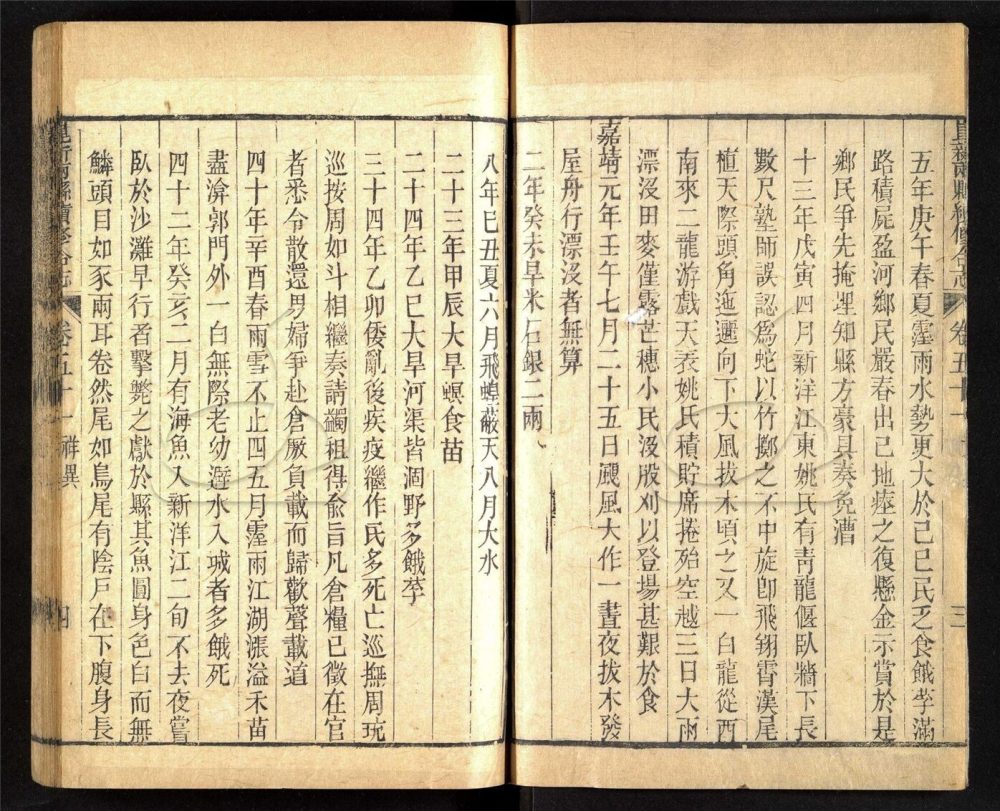 崑新兩縣續修合志 卷五十一 三
五年庚午春夏霪雨水勢更大於己巳民乏食餓莩滿
路積屍盈河鄉民嚴春出己地瘞之復懸金示賞於是
鄉民爭先掩埋知縣方豪具奏免漕
十三年戊寅四月新洋江東姚氏有靑龍偃臥牆下長
數尺塾師誤認爲蛇以竹擲之不中旋卽飛翔霄漢尾
植天際頭角迤邐向下大風拔木頃之又一白龍從西
南來二龍游戲天表姚氏積貯席捲殆空越三日大雨
漂沒田麥僅露芒穗小民沒股刈以登場甚艱於食
嘉靖元年壬午七月二十五日颶風大作一晝夜拔木發
屋舟行漂沒者無算
二年癸未旱米石銀二兩
八年己丑夏六月飛蝗蔽天八月大水
二十三年甲辰大旱螟食苗
二十四年乙巳大旱河渠皆涸野多餓莩
三十四年乙卯倭亂後疾疫繼作民多死亡巡撫周珫
巡按周如斗相繼奏請蠲租得兪旨凡倉糧已徵在官
者悉令散還男婦爭赴倉厫負載而歸歡聲載道
四十年辛酉春雨雪不止四五月霪雨江湖漲溢禾苗
盡渰郭門外一白無際老幼避水入城者多餓死
四十二年癸亥二月有海魚入新洋江二旬不去夜嘗
臥於沙灘早行者擊斃之獻於縣其魚圓身色白而無
鱗頭目如豕兩耳卷然尾如鳥尾有陰戶在下腹身長
崑新兩縣續修合志 卷五十一 祥異 四